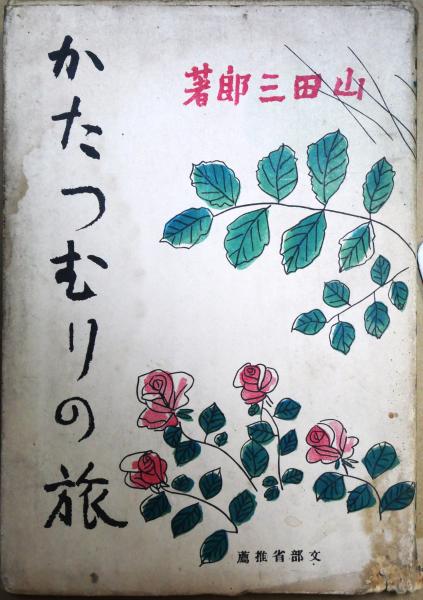 かたつむりの旅
山田三郎著
文部省推薦